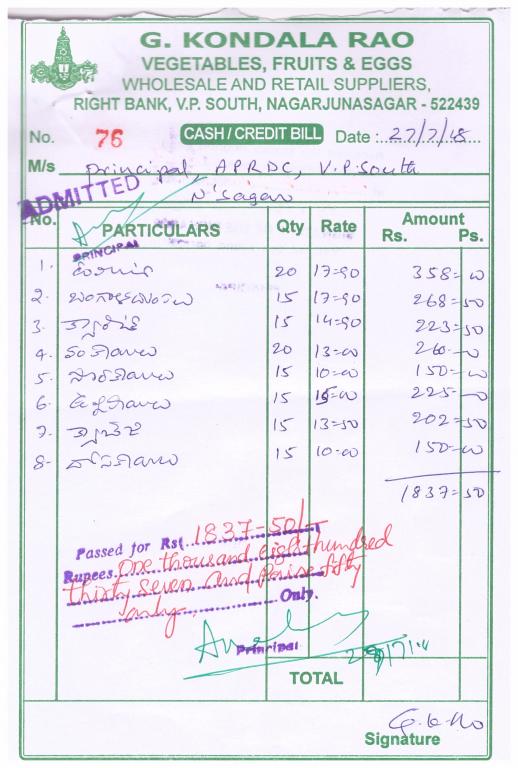 G. KONDALA RAO
VEGETABLES, FRUITS & EGGS
WHOLESALE AND RETAIL SUPPLIERS,
RIGHT BANK, V.P. SOUTH, NAGARJUNASAGAR - 522439
No. 76 CASH / CREDIT BILL Date : 27/7/18
M/s Principal, APRDC, V.P. South
N'Sagar
ADMITTED
No. PARTICULARS Qty Rate Amount
Rs. Ps.
PRINCIPAL
1. 20 17=90 358=00
2. బంగాళదుంపలు 15 17=90 268=50
3. క్యారెట్ 15 14=90 223=50
4. వంకాయలు 20 13=00 260=00
5. సొరకాయలు 15 10=00 150=00
6. 15 15=00 225=00
7. క్యాబేజి 15 13=50 202=50
8- దోసకాయలు 15 10=00 150=00
1837=50
Passed for Rs. 1837-50/-
Rupees One thousand eight hundred
thirty seven and paise fifty
only. Only.
Principal
TOTAL
G.K.Rao
Signature